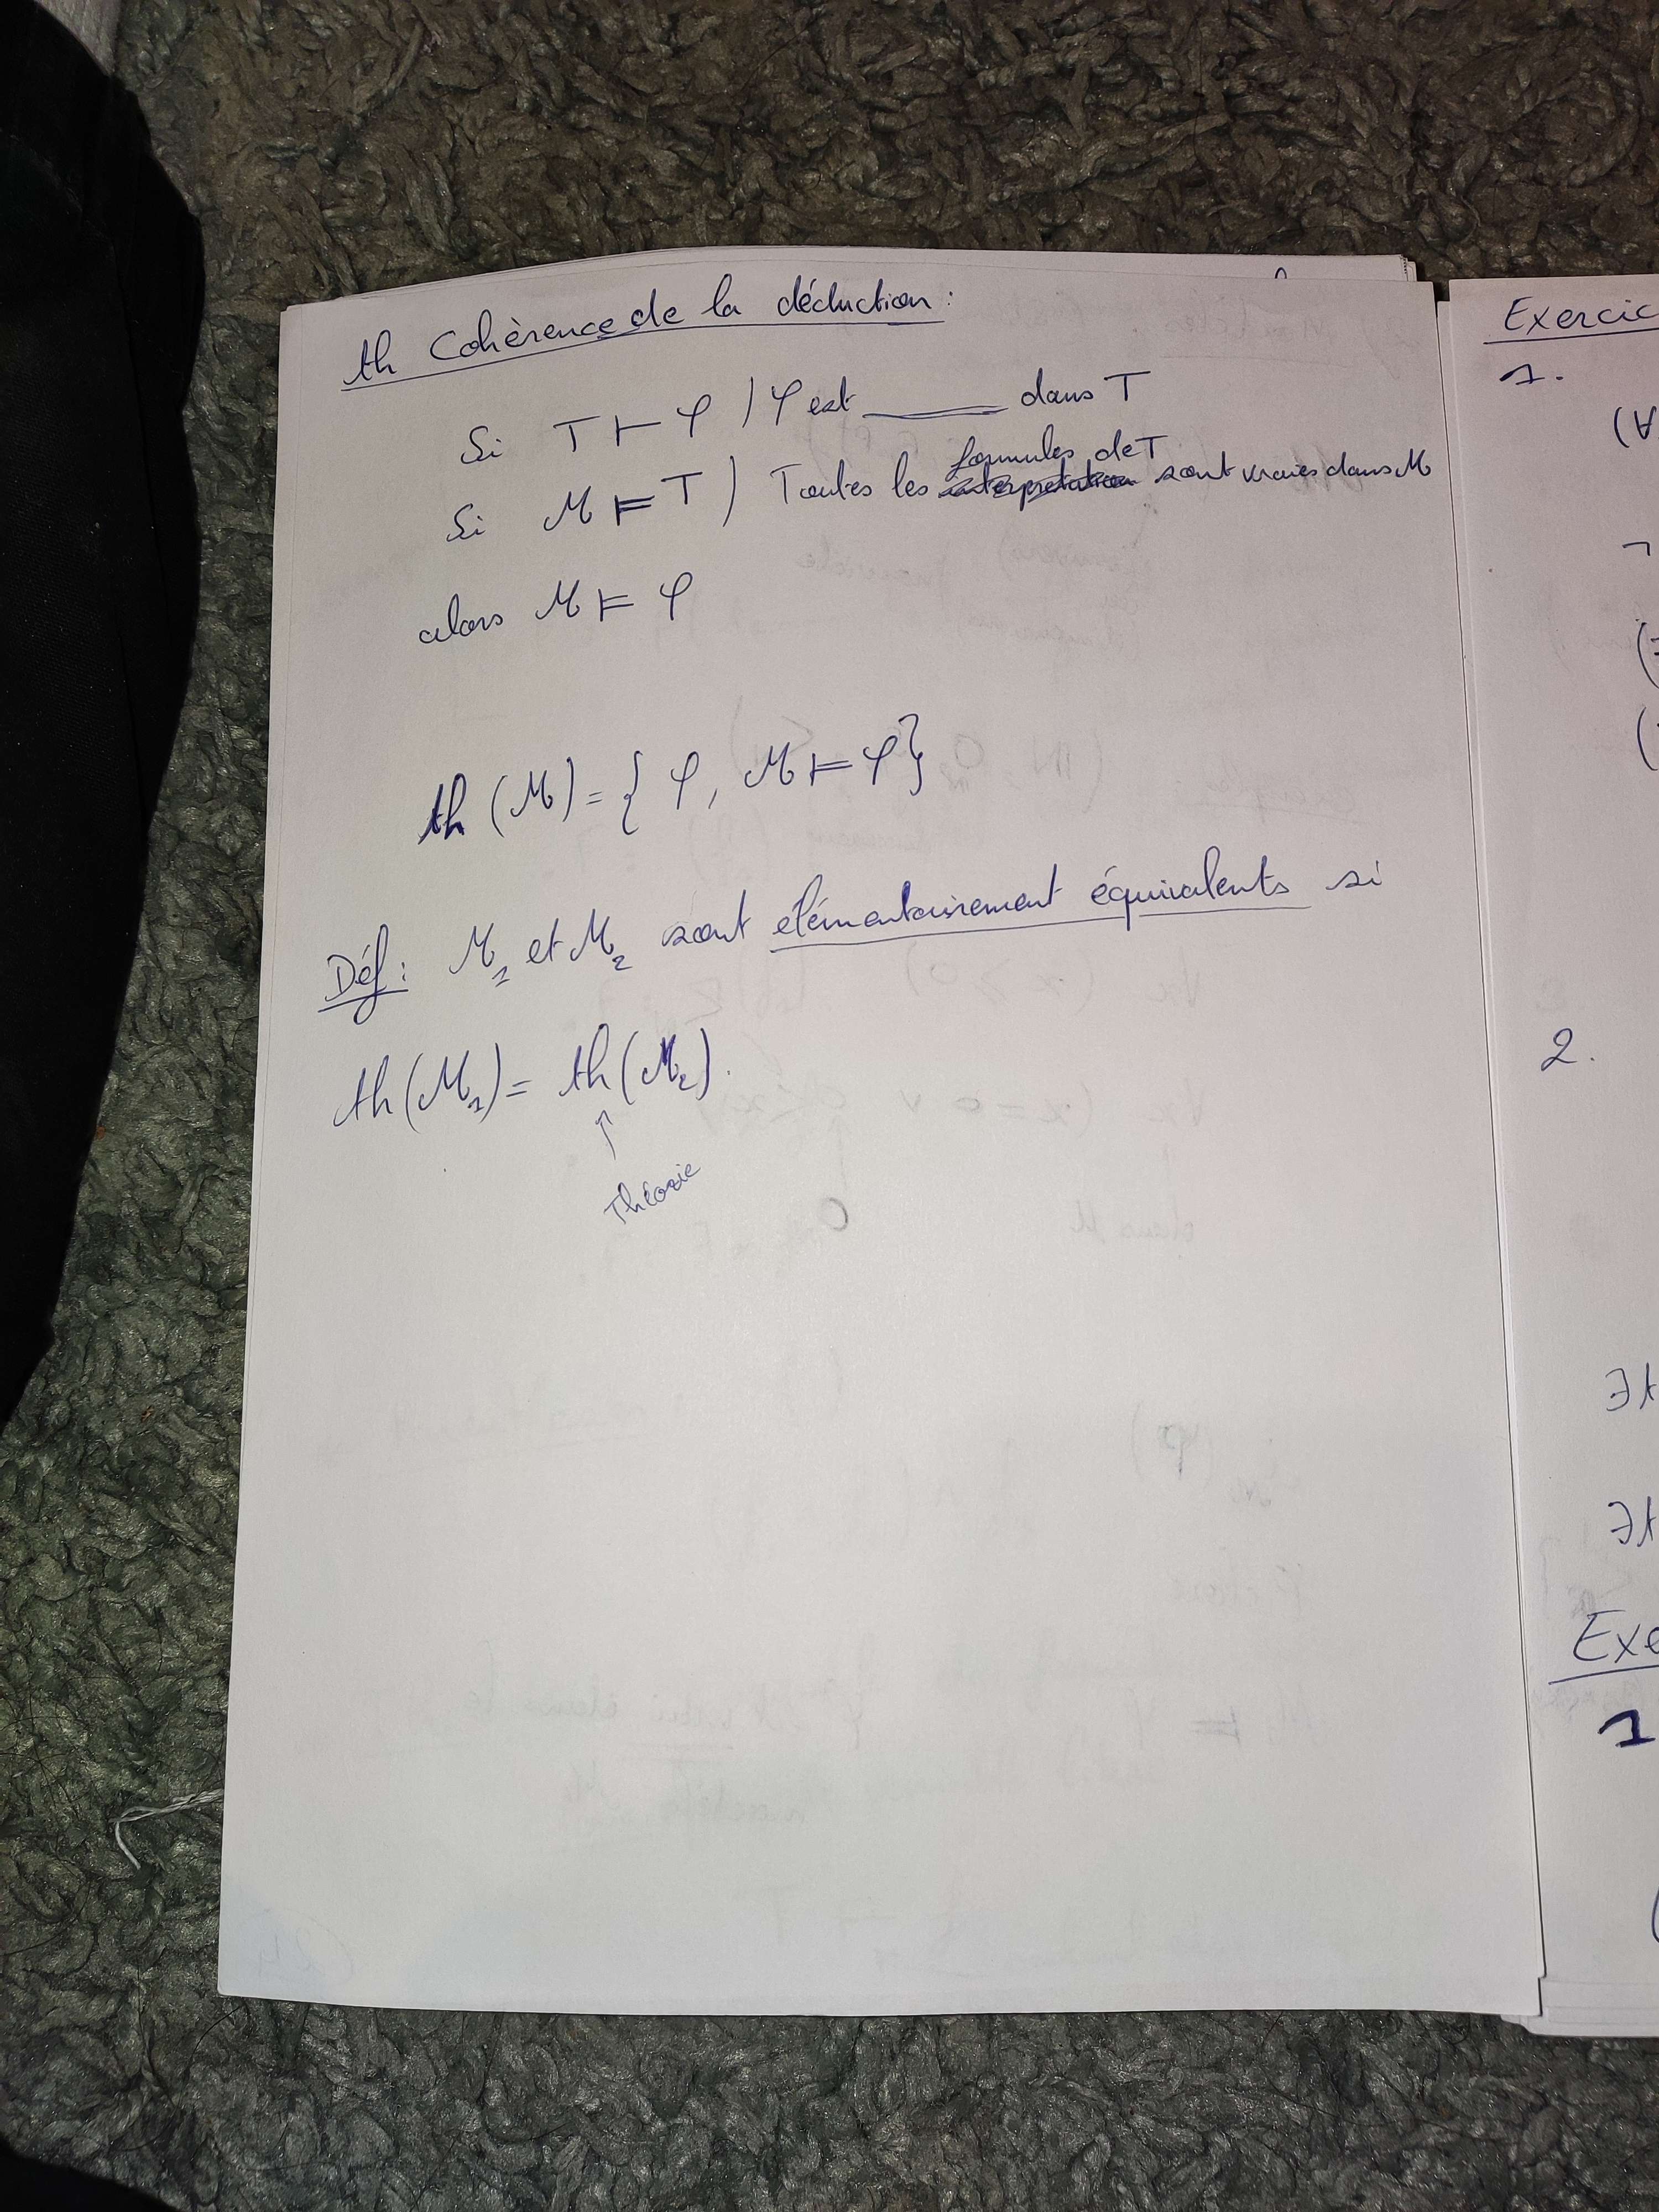 th Cohèrence de la déduction :
Si T ⊢ φ ) φ est ______ dans T
Si M ⊨ T ) Toutes les formules de T sont vraies dans M
alors M ⊨ φ
th (M) = { φ, M ⊨ φ }
Déf : M₁ et M₂ sont élémentairement équivalents si
th(M₁) = th(M₂).
↑
Théorie
Exercic
1.
(∀
¬
2.
∃t
∃t
Exe
1